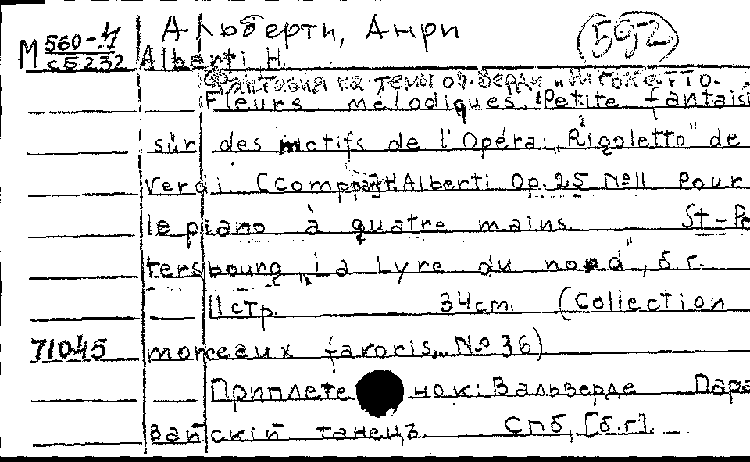 Альберти, Анри (592)
М 560-4
С5232 Alberti H.
Фантазия на темы оп. Верди „Риголетто.
Fleurs mélodiques. Petite fantais
sur des motifs de l'Opéra: „Rigoletto" de
Verdi [Comp. par H. Alberti Op. 25 №11 Pour
le piano à quatre mains. St-Pe
tersbourg „La Lyre du nord", б.г.
11 стр. 34cm. (Collection
71045 morceaux favoris, №36)
Приплете нок: Вальверде Пара
вайскій танецъ. Спб, [б.г].